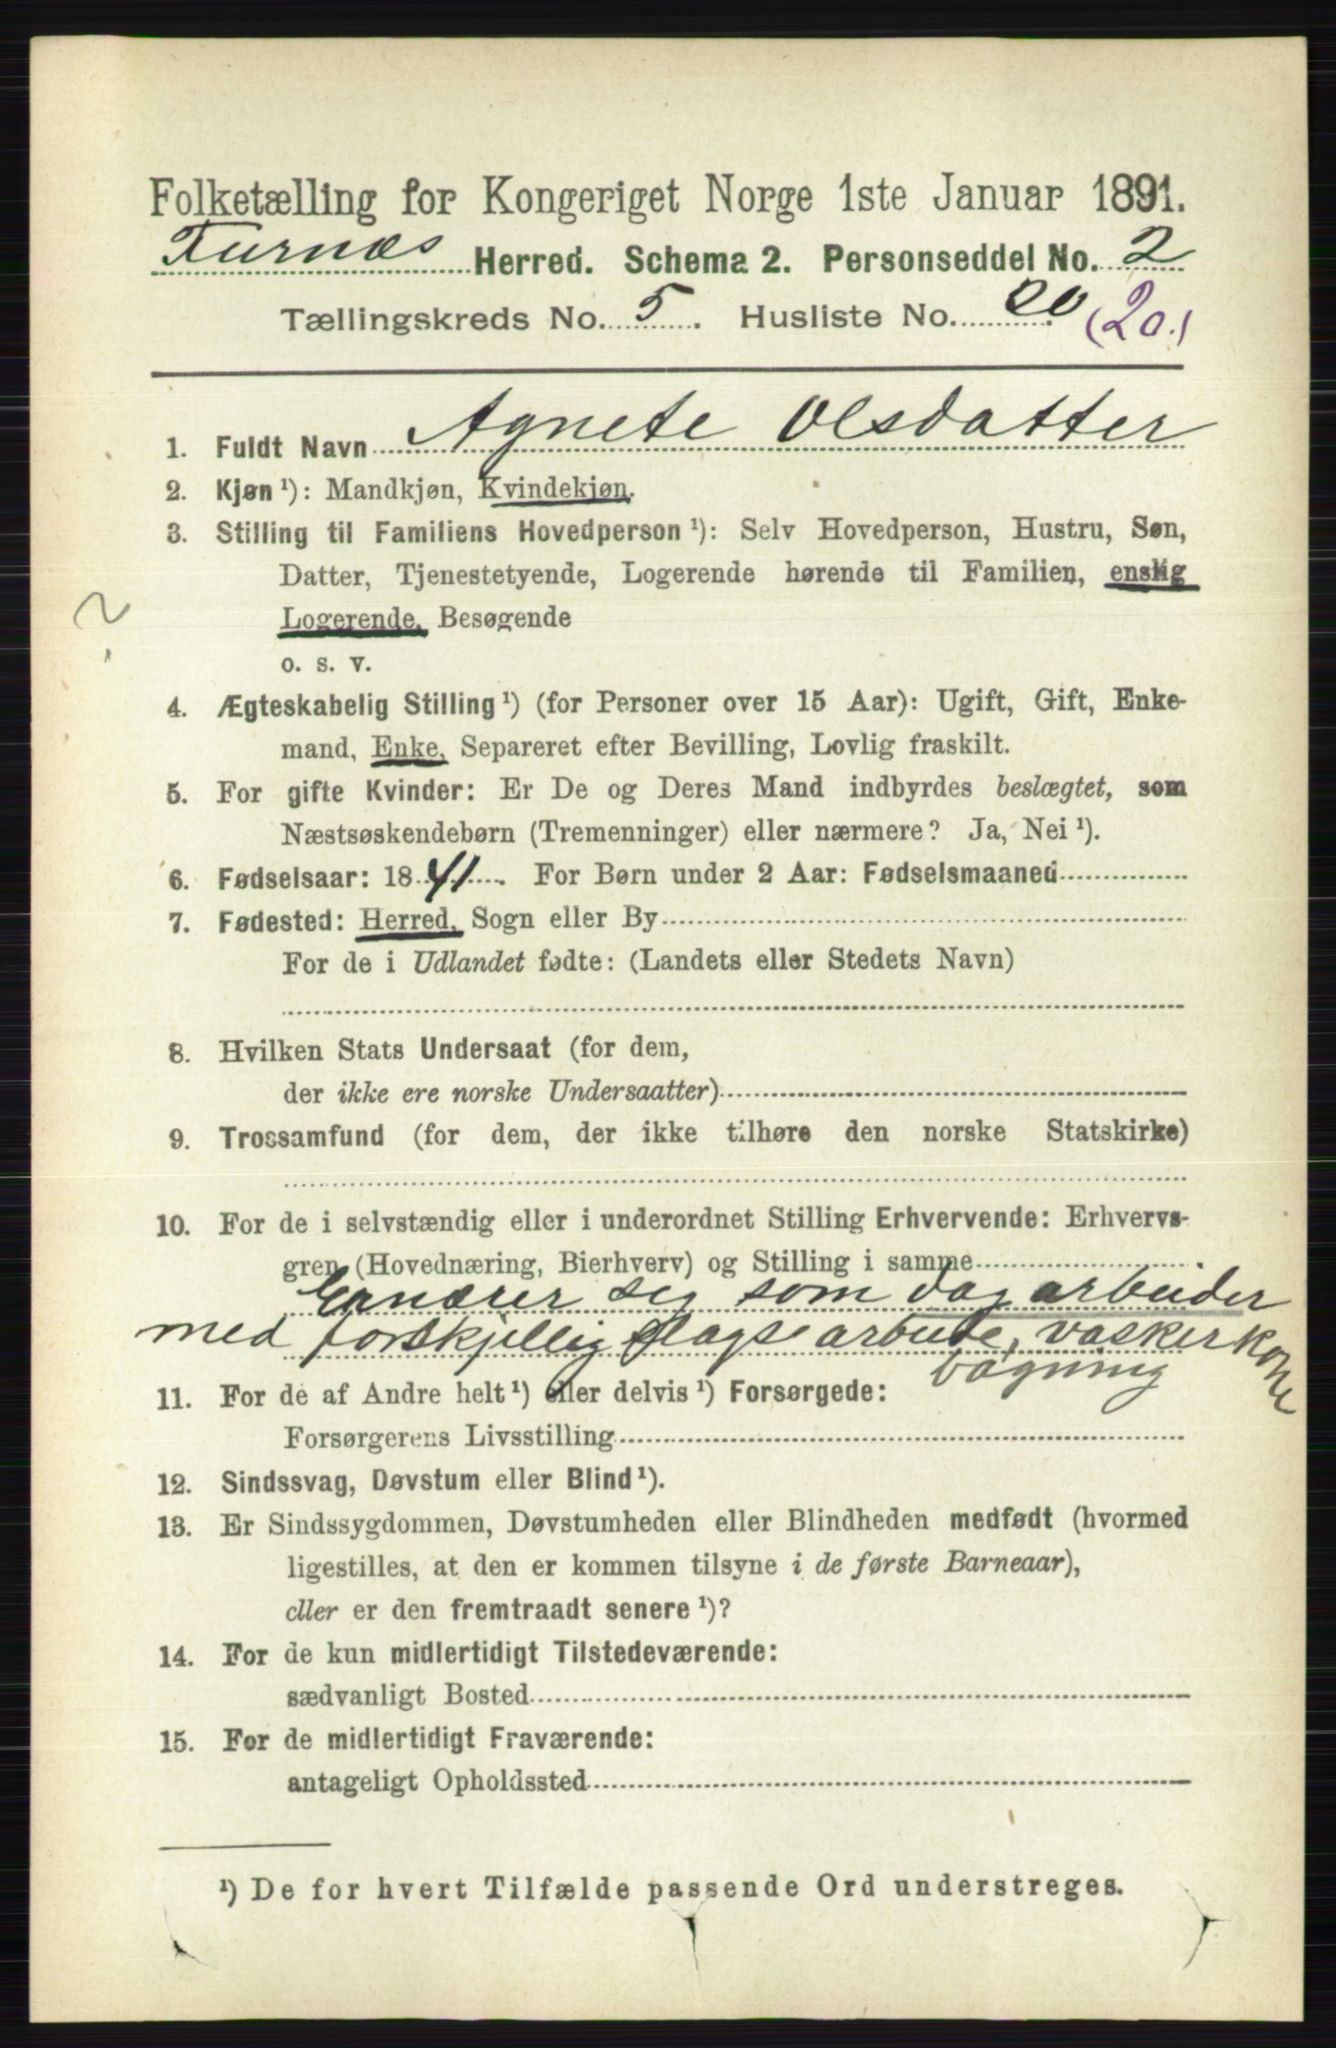 Folketælling for Kongeriget Norge 1ste Januar 1891.
Furnæs Herred. Schema 2. Personseddel No. 2
Tællingskreds No. 5. Husliste No. 20 (20.)
1. Fuldt Navn Agnete Olsdatter
2. Kjøn ¹): Mandkjøn, Kvindekjøn.
3. Stilling til Familiens Hovedperson ¹): Selv Hovedperson, Hustru, Søn,
Datter, Tjenestetyende, Logerende hørende til Familien, enslig
?
Logerende, Besøgende
o. s. v.
4. Ægteskabelig Stilling ¹) (for Personer over 15 Aar): Ugift, Gift, Enke-
mand, Enke, Separeret efter Bevilling, Lovlig fraskilt.
5. For gifte Kvinder: Er De og Deres Mand indbyrdes beslægtet, som
Næstsøskendebørn (Tremenninger) eller nærmere? Ja, Nei ¹).
6. Fødselsaar: 1841. For Børn under 2 Aar: Fødselsmaaned
7. Fødested: Herred, Sogn eller By
For de i Udlandet fødte: (Landets eller Stedets Navn)
8. Hvilken Stats Undersaat (for dem,
der ikke ere norske Undersaatter)
9. Trossamfund (for dem, der ikke tilhøre den norske Statskirke)
10. For de i selvstændig eller i underordnet Stilling Erhvervende: Erhvervs-
gren (Hovednæring, Bierhverv) og Stilling i samme
Ernærer sig som dagarbeider
med forskjellig slags arbeide, vaskerkone
bagning
11. For de af Andre helt ¹) eller delvis ¹) Forsørgede:
Forsørgerens Livsstilling
12. Sindssvag, Døvstum eller Blind ¹).
13. Er Sindssygdommen, Døvstumheden eller Blindheden medfødt (hvormed
ligestilles, at den er kommen tilsyne i de første Barneaar),
eller er den fremtraadt senere ¹)?
14. For de kun midlertidigt Tilstedeværende:
sædvanligt Bosted
15. For de midlertidigt Fraværende:
antageligt Opholdssted
¹) De for hvert Tilfælde passende Ord understreges.